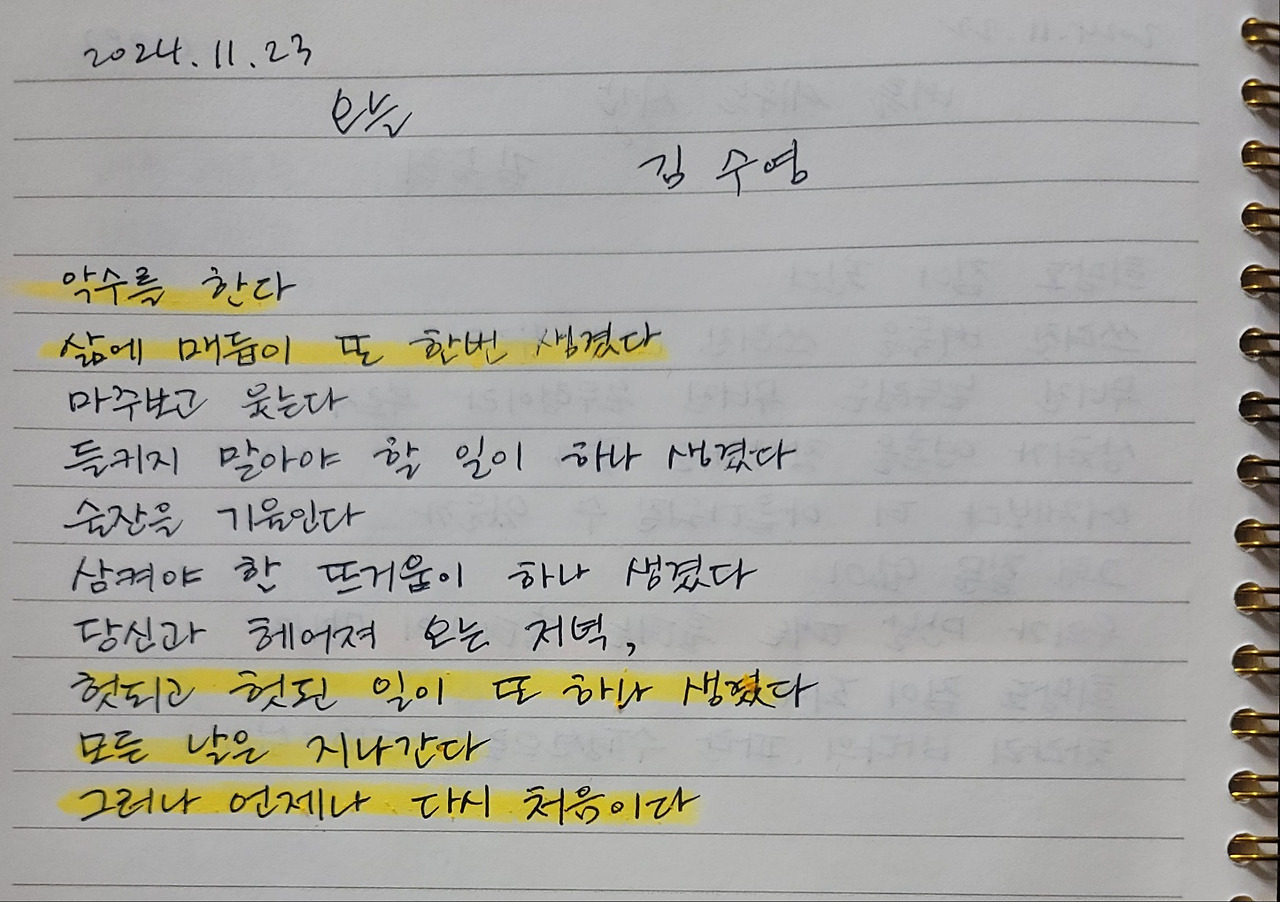 2024.11.23
오늘
김수영
악수를 한다
삶에 매듭이 또 한번 생겼다
마주보고 웃는다
들키지 말아야 할 일이 하나 생겼다
술잔을 기울인다
삼켜야 한 뜨거움이 하나 생겼다
당신과 헤어져 오는 저녁,
헛되고 헛된 일이 또 하나 생겼다
모든 날은 지나간다
그러나 언제나 다시 처음이다